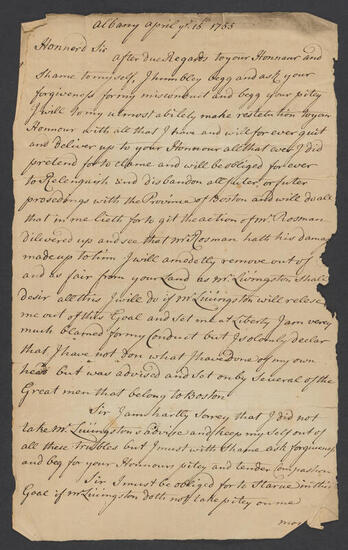 Albany April ye 15th 1755
Honnerd Sir
after due Regards to your Honnaur and
Shame to myself, I humbley begg and ask your
forgiveness for my misconduct and begg your pitey
I will to my utmost abilety make restetution to your
Honnour with all that I have and will for ever quit
and deliver up to your Honnour all that ever I did
pretend for to clame and will be obliged for ever
to Relenguish and disbandon all futer, or futer
prosedings with the Province of Boston and will do all
that in me lieth for to git the action of Mr. Rosman
dilivered up and see that Mr Rosman hath his damag
made up to him I will amedetly remove out of
and as fair from your Land as Mr Livingston shall
desir all this I will do if Mr Livingston will relese
me out of this Goal and Set me at Liberty I am verey
much blamed for my Conduct but I Solomly declar
that I have not don what I have done of my own
head but was advised and Set on by Several of the
Great men that belong to Boston
Sir I am hartly Sorey that I did not
take Mr. Livingston's advise and keep my Self out of
all these trubles but I must with Shame ask forgivness
and beg for your Honnour pitey and tender Compashon
Sir I must be obliged for to Starve in this
Goal if Mr Livingston doth not take pitey on me